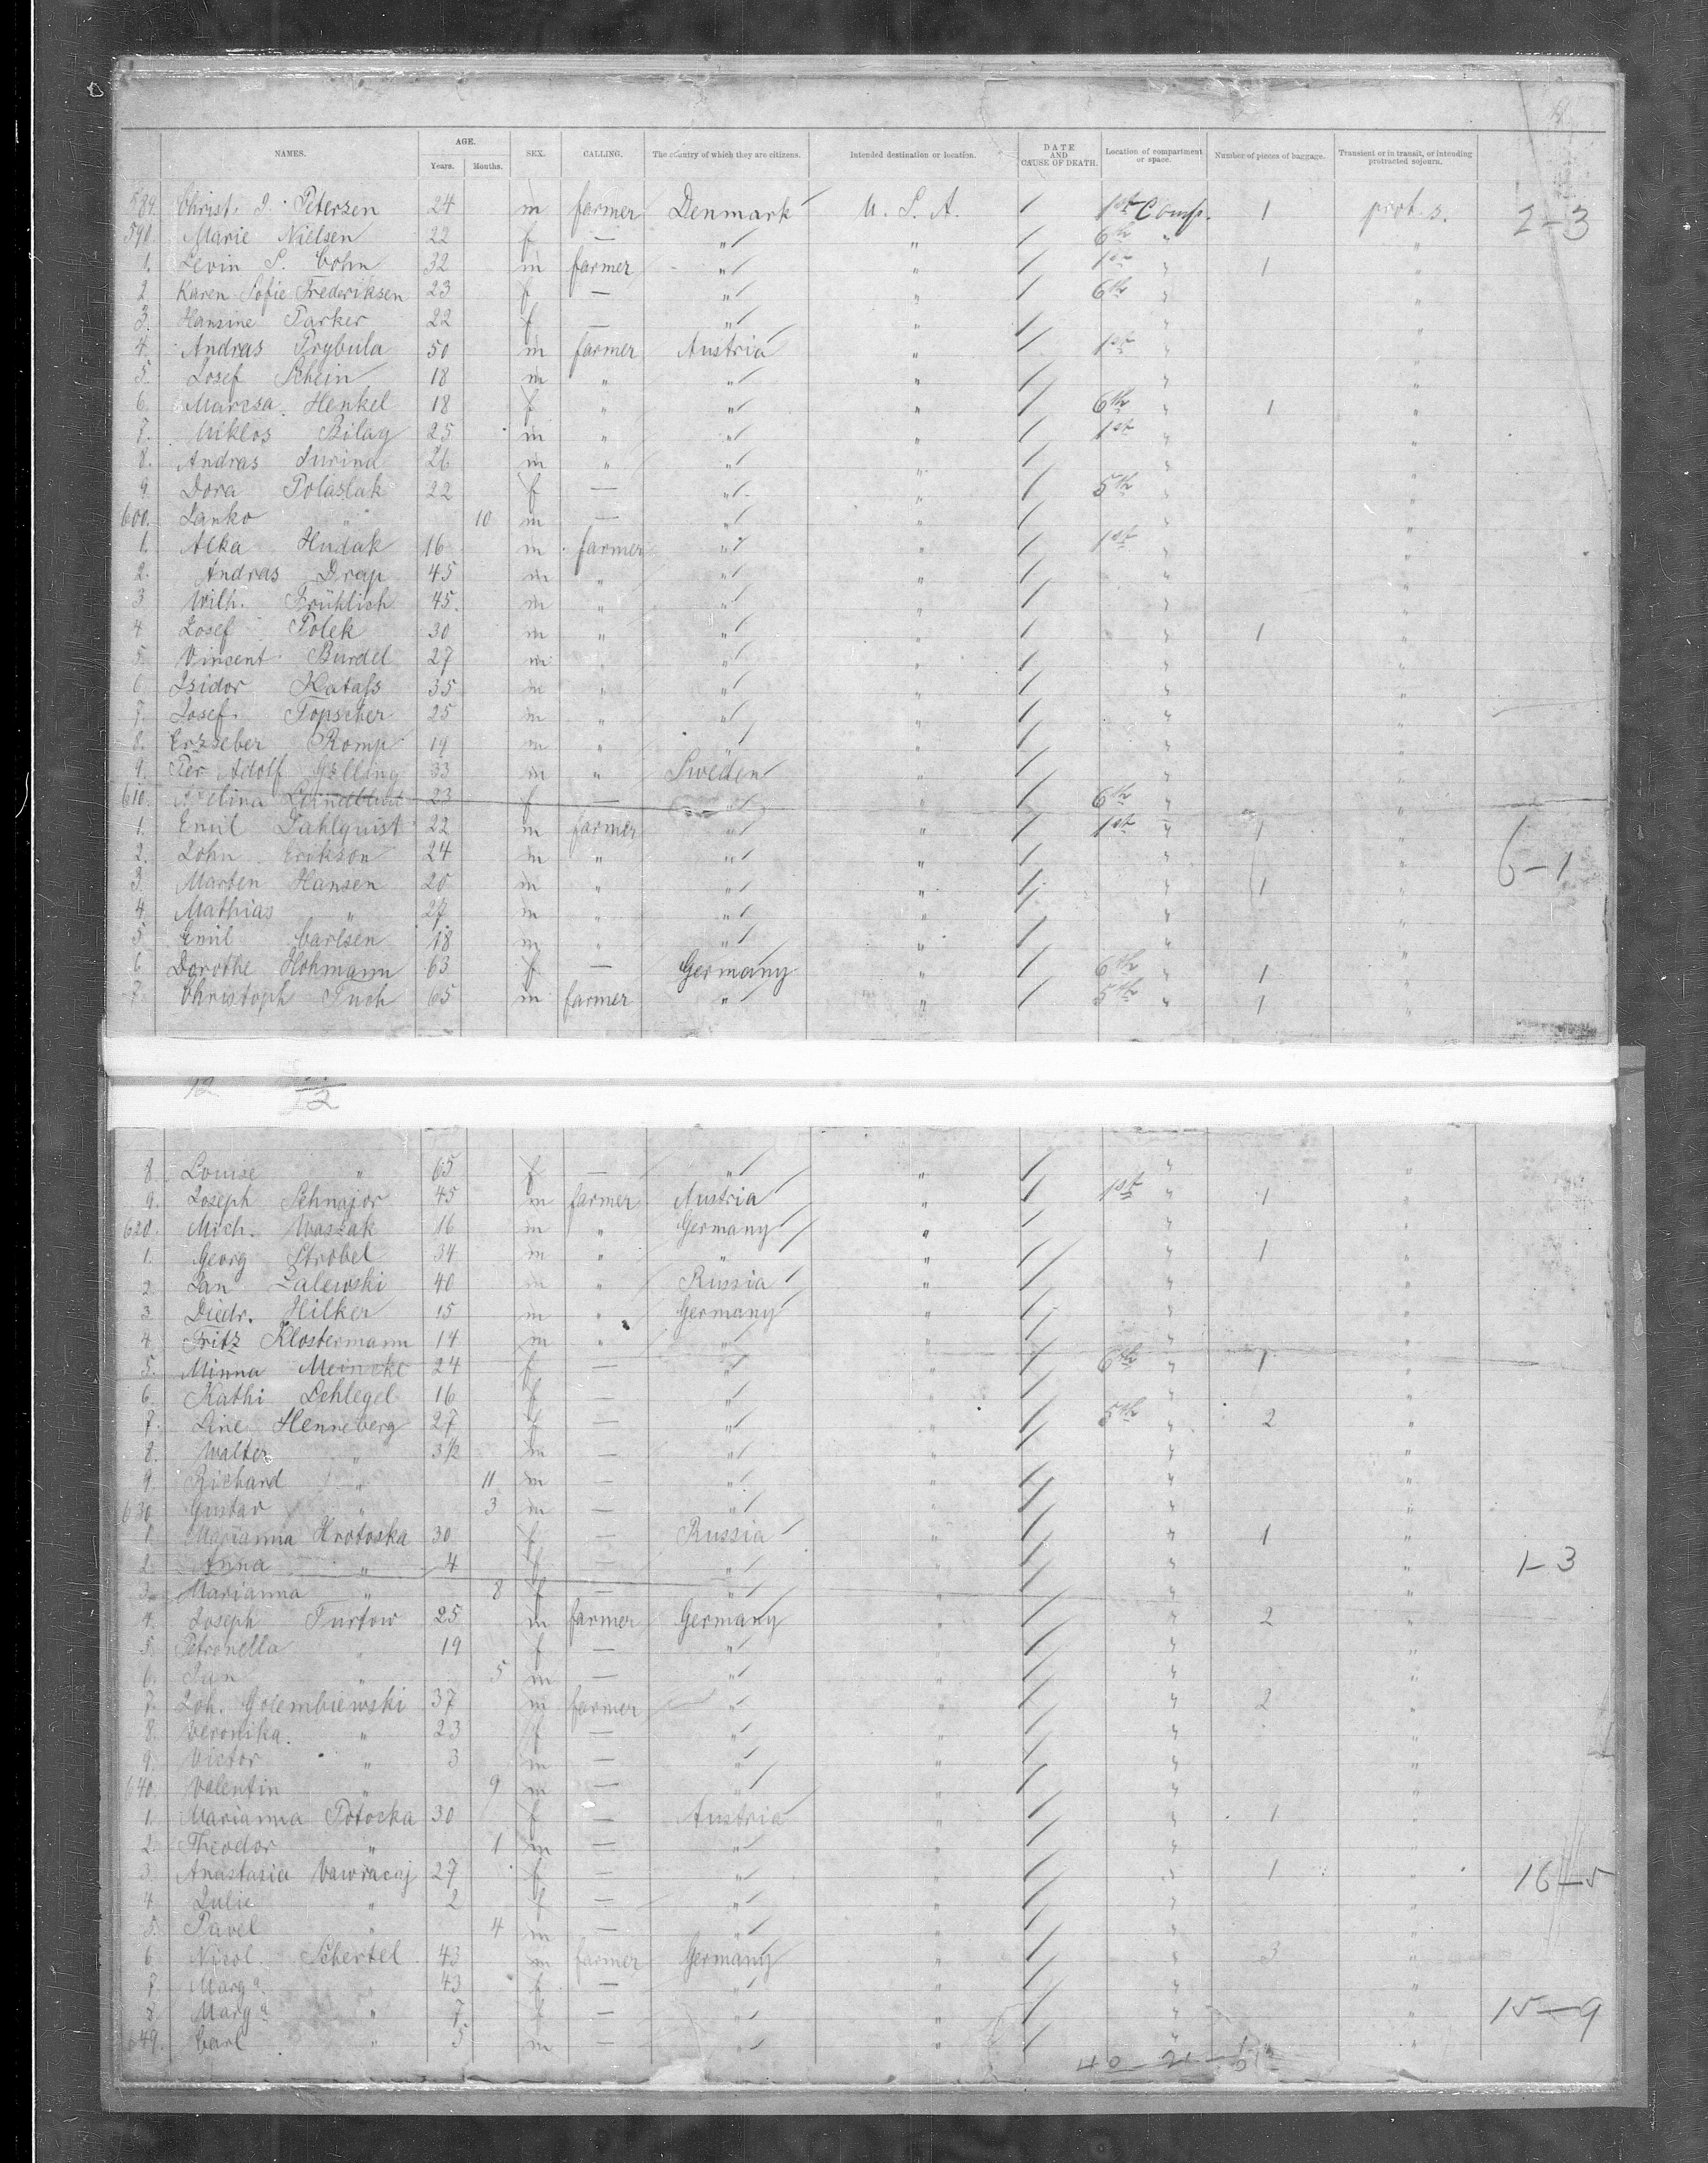 NAMES. AGE. Years. Months. SEX. CALLING. The country of which they are citizens. Intended destination or location. DATE AND CAUSE OF DEATH. Location of compartment or space. Number of pieces of baggage. Transient or in transit, or intending protracted sojourn.
589. Christ. J. Petersen 24 m farmer Denmark U. S. A. 1st Comp. 1 prot. s. 2-3
590. Marie Nielsen 22 f — " " 6th " "
1. Levin S. Cohn 32 m farmer " " 1st " 1 "
2 Karen Sofie Frederiksen 23 f — " " 6th " "
3. Hansine Parker 22 f — " " " "
4. Andras Prybula 50 m farmer Austria " 1st " "
5. Josef Schein 18 m " " " " "
6. Marcsa Henkel 18 f " " " 6th " 1 "
7. Miklos Bilag 25 m " " " 1st " "
8. Andras Jurina 26 m " " " " "
9. Dora Polaslak 22 f — " " 5th " "
600. Janko " 10 m — " " " "
1. Alka Hudak 16 m farmer " " 1st " "
2. Andras Drap 45 m " " " " "
3 Wilh. Frühlich 45. m " " " " "
4 Josef Polek 30 m " " " " 1 "
5. Vincent Burdel 27 m " " " " "
6 Isidor Katafs 35 m " " " " "
7. Josef Topscher 25 m " " " " "
8. Erzseber Romp 19 m " " " " "
9. Per Adolf 33 m " Sweden " " "
610. 23 f — " " 6th " "
1. Emil Dahlquist 22 m farmer " " 1st " 1 "
2. John Erikson 24 m " " " " " 6-1
3. Marten Hansen 20 m " " " " 1 "
4. Mathias " 27 m " " " " "
5 Emil Carlsen 18 m " " " " "
6 Dorothe Hohmann 63 f — Germany " 6th " 1 "
7. Christoph Tuch 65 m farmer " " 5th " 1 "
12 12
8. Louise " 65 f — " " " "
9. Joseph Schnajor 45 m farmer Austria " 1st " 1 "
620. Mich. Waszak 16 m " Germany " " "
1. Georg Strobel 34 m " " " " 1 "
2 Jan Zalewski 40 m " Russia " " "
3 Diedr. Hilker 15 m " Germany " " "
4. Fritz Klostermann 14 m " " " " "
5. Minna Meincke 24 f — " " 6th " 1 "
6. Kathi Dehlegel 16 f — " " " "
7. Line Henneberg 27 f — " " 5th " 2 "
8. Walter " 3 1/2 m — " " " "
9. Richard " 11 m — " " " "
630 Gustav " 3 m — " " " "
1. Marianna Krotoska 30 f — Russia " " 1 "
2. Anna " 4 f — " " " " 1-3
3. Marianna " 8 f — " " " "
4. Joseph Turtow 25 m farmer Germany " " 2 "
5. Petronella " 19 f — " " " "
6. Jan " 5 m — " " " "
7. Joh. Golembiewski 37 m farmer " " " 2 "
8. Veronika " 23 f — " " " "
9. Victor " 3 m — " " " "
640. Valentin " 9 m — " " " "
1. Marianna Potocka 30 f — Austria " " 1 "
2. Theodor " 1 m — " " " "
3. Anastasia Vawracaj 27 f — " " " 1 " 16-5
4 Julie " 2 f — " " " "
5. Pavel " 4 m — " " " "
6. Nicol. Schertel 43 m farmer Germany " " 3 "
7. Marga " 43 f — " " " "
8. Marga " 7 f — " " " " 15-9
649. Carl " 5 m — " " " "
40 - 21 -